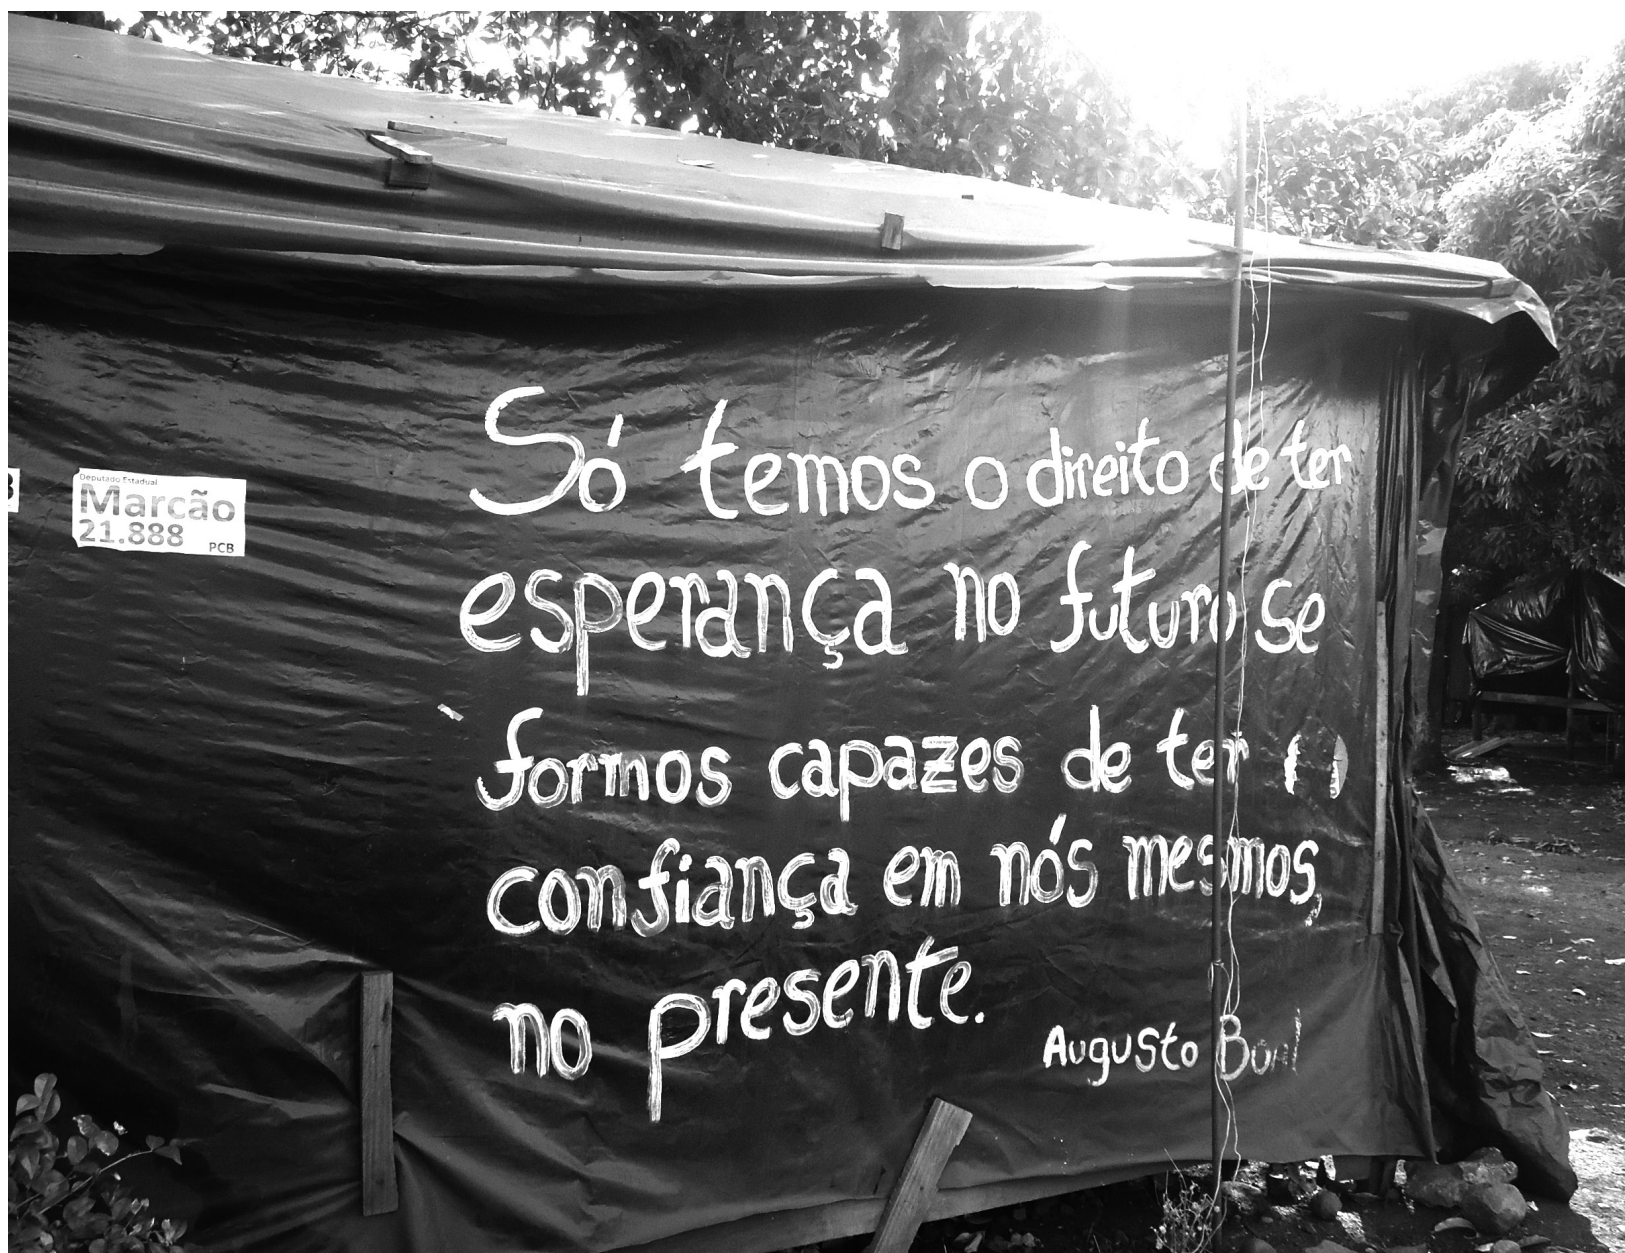 Deputado Estadual
Marcão
21.888
PCB
Só temos o direito de ter
esperança no futuro se
formos capazes de ter
confiança em nós mesmos,
no presente.
Augusto Boal